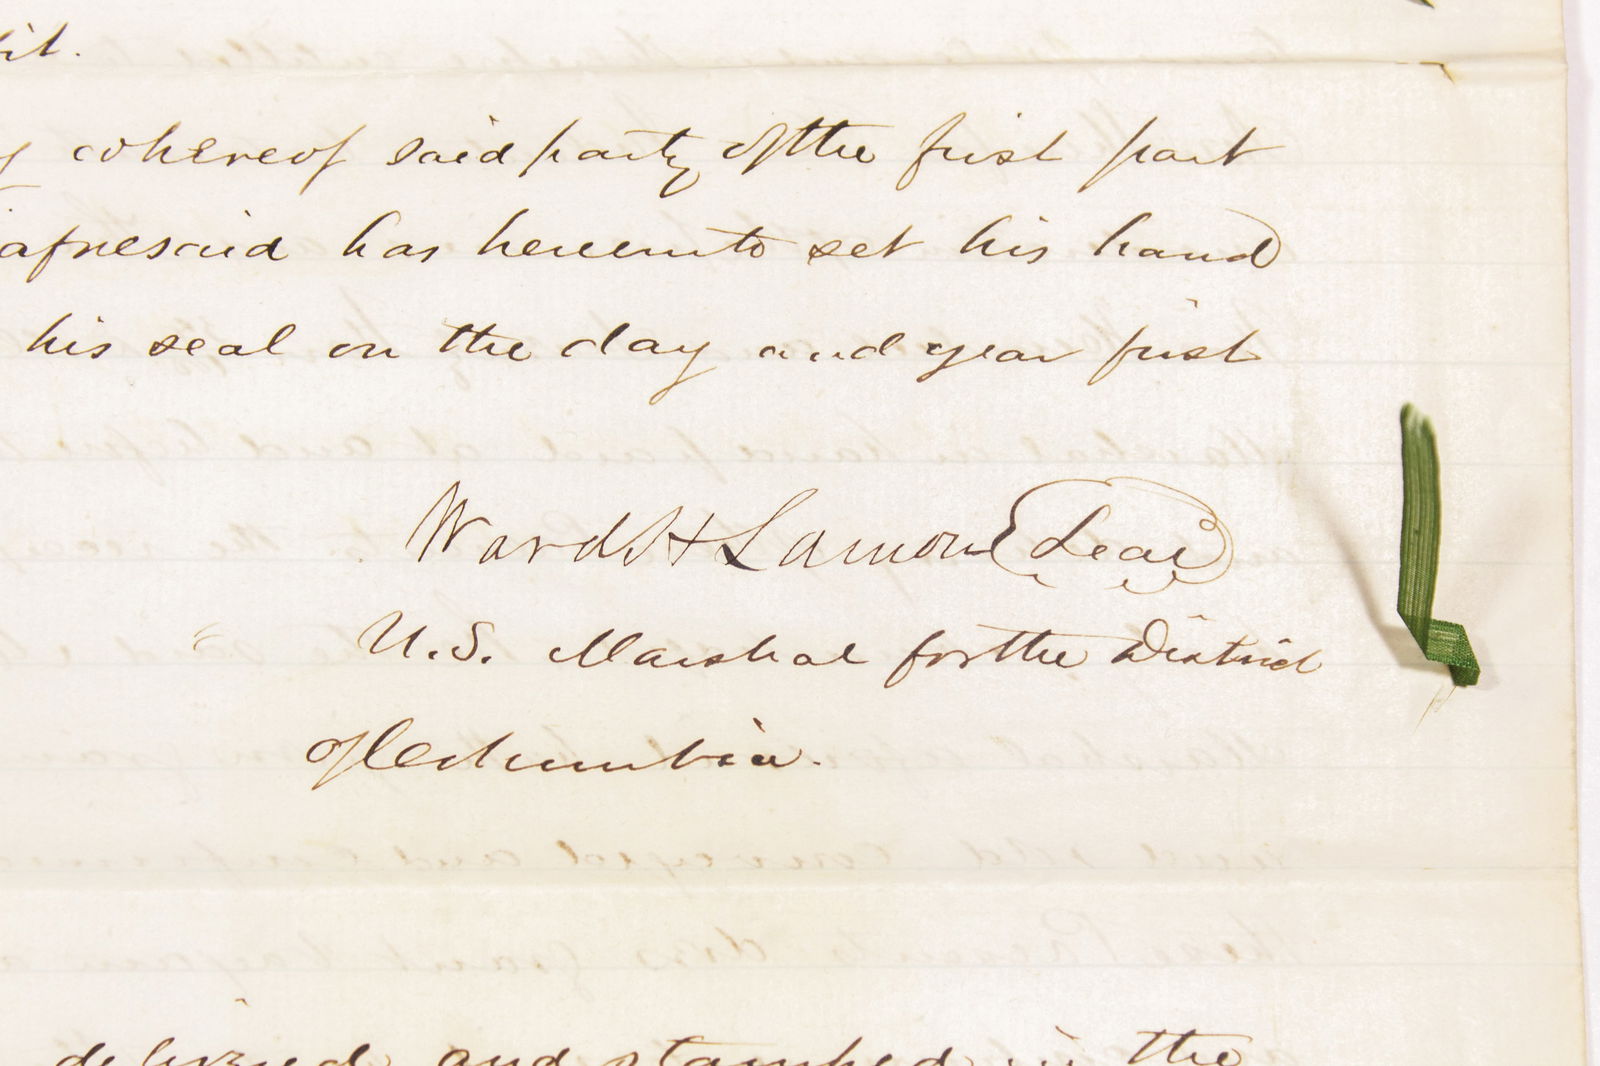 whereof said party of the first part
aforesaid has hereunto set his hand
his seal on the day and year first
Ward H Lamon Seal
U.S. Marshal for the District
of Columbia.
delivered and stamped in the